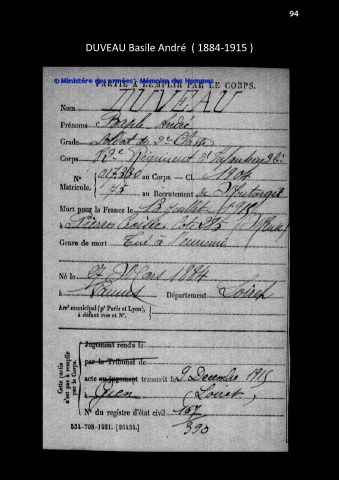 94
DUVEAU Basile André ( 1884-1915 )
© Ministère des armées - Mémoire des Hommes
PARTIE À REMPLIR PAR LE CORPS.
Nom DUVEAU
Prénoms Basile André
Grade Soldat de 2e Classe
Corps Régiment d'Infanterie
N° au Corps. — Cl. 1904
Matricule. 75 au Recrutement de Montargis
Mort pour la France le 13 juillet 1915
à Cote 285 (Meuse)
Genre de mort Tué à l'ennemi
Né le 27 Mars 1884
à Département Loiret
Arrt municipal (pr Paris et Lyon), à défaut rue et N°.
Cette partie n'est pas à remplir par le Corps.
Jugement rendu le
par le Tribunal de
acte ou jugement transcrit le 2 Décembre 1915
à Gien (Loiret)
N° du registre d'état civil 167
390
534-708-1921. [26434.]